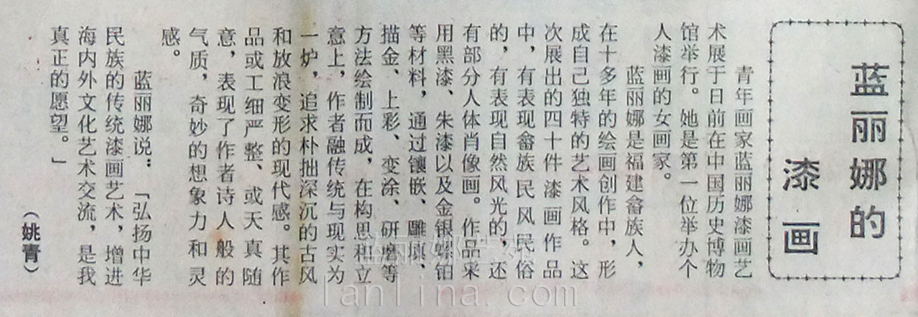 蓝丽娜的
漆画
青年画家蓝丽娜漆画艺
术展于日前在中国历史博物
馆举行。她是第一位举办个
人漆画的女画家。
蓝丽娜是福建畲族人，
在十多年的绘画创作中，形
成自己独特的艺术风格。这
次展出的四十件漆画作品
中，有表现畲族民风民俗
的，有表现自然风光的，还
有部分人体肖像画。作品采
用黑漆、朱漆以及金银螺铂
等材料，通过镶嵌、雕填、
描金、上彩、变涂、研磨等
方法绘制而成，在构思和立
意上，作者融传统与现实为
一炉，追求朴拙深沉的古风
和放浪变形的现代感。其作
品或工细严整、或天真随
意，表现了作者诗人般的
气质，奇妙的想象力和灵
感。
蓝丽娜说：“弘扬中华
民族的传统漆画艺术，增进
海内外文化艺术交流，是我
真正的愿望。”
（姚青）
lanlina.com